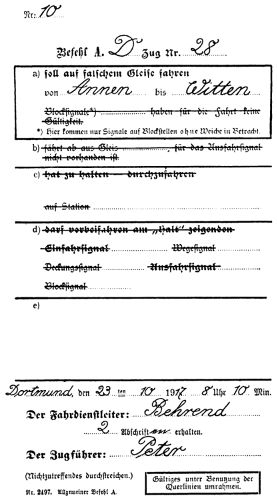 Nr: 10
Befehl A. D Zug Nr. 28
a) soll auf falschem Gleise fahren
von Annen bis Witten
Blocksignale*) haben für die Fahrt keine
Gültigkeit.
*) Hier kommen nur Signale auf Blockstellen ohne Weiche in Betracht.
b) fährt ab aus Gleis, für das Ausfahrsignal
nicht vorhanden ist.
c) hat zu halten – durchzufahren
auf Station
d) darf vorbeifahren am „Halt" zeigenden
Einfahrsignal Wegesignal
Deckungssignal Ausfahrsignal
Blocksignal
e)
Dortmund, den 23 ten 10 1917 8 Uhr 10 Min.
Der Fahrdienstleiter: Behrend
2 Abschrift en erhalten.
Der Zugführer: Peter
(Nichtzutreffendes durchstreichen.)
Gültiges unter Benutzung der
Querlinien umrahmen.
Nr. 2497. Allgemeiner Befehl A.